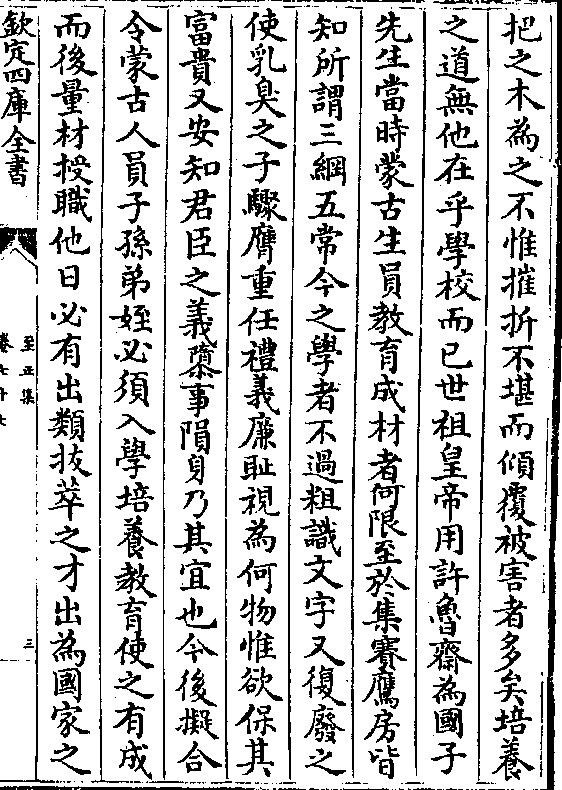 把之木為之不惟摧折不堪而傾覆被害者多矣培養
之道無他在乎學校而已世祖皇帝用許魯齋為國子
先生當時蒙古生員教育成材者何限至於集賽鷹房皆
知所謂三綱五常今之學者不過粗識文字又復廢之
使乳臭之子驟膺重任禮義廉耻視為何物惟欲保其
富貴又安知君臣之義隳事隕身乃其宜也今後擬合
令蒙古人員子孫弟姪必須入學培養教育使之有成
而後量材授職他日必有出類拔萃之才出為國家之
欽定四庫全書
至正集
卷七十七
三